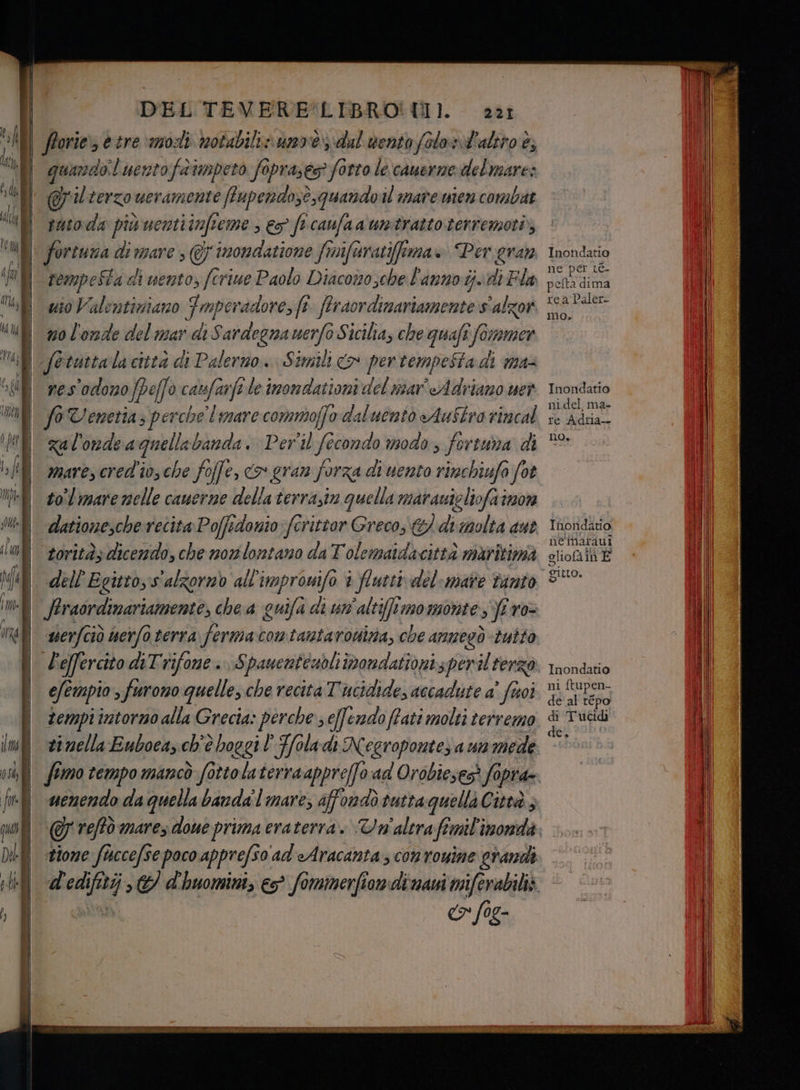 DEL TEVERE LIBRO III. 221
storie, e tre modi notabili: uno è, dal uento solo: l'altro è,
quando'l uento fà impeto sopra, & sotto le cauerne del mare:
& il terzo ueramente stupendo, è, quando il mare uien combat
tuto da più uenti insieme, & si causa a un tratto terremoti,
fortuna di mare, & inondatione smisuratissima. Per gran
tempesta di uento, scriue Paolo Diacono, che l'anno ij. di Fla
uio Valentiniano Imperadore, si straordinariamente s'alzor
no l'onde del mar di Sardegna uerso Sicilia, che quasi sommer
se tutta la città di Palermo. Simili & per tempesta di ma-
re s'odono spesso causarsi le inondationi del mar' Adriano uer
so Venetia, perche'l mare commosso dal uento Austro rincal
za l'onde a quella banda. Per'il secondo modo, fortuna di
mare, cred'io, che fosse, & gran forza di uento rinchiuso sot
to'l mare nelle cauerne della terra, in quella marauigliosa inon
datione, che recita Possidonio scrittor Greco, & di molta aut
torità, dicendo, che non lontano da Tolemaida città maritima
dell' Egitto, s'alzorno all'improuiso i flutti del mare tanto
straordinariamente, che a guisa di un'altissimo monte, si ro-
uersciò uerso terra ferma con tanta rouina, che annegò tutto
l'essercito di Trifone. Spauenteuoli inondationi, per il terzo
esempio, furono quelle, che recita Tucidide, accadute a' suoi
tempi intorno alla Grecia: perche, essendo stati molti terremo
ti nella Euboea, ch'è hoggi l' Isola di Negroponte, a un mede
simo tempo mancò sotto la terra appresso ad Orobie, & sopra-
uenendo da quella banda'l mare, affondò tutta quella Città,
& restò mare, doue prima era terra. Vn'altra simil'inonda
tione successe poco appresso ad Aracanta, con rouine grandi
d'edifitij, & d'huomini, & sommersion di naui miserabili:
& sog-
Inondatio
ne per tē-
pesta di ma
re a Paler-
mo.
Inondatio
ni del, ma-
re Adria--
no.
Inondatio
ne maraui
gliosa in E
gitto.
Inondatio
ni stupen-
de al tépo
di Tucidi
de.